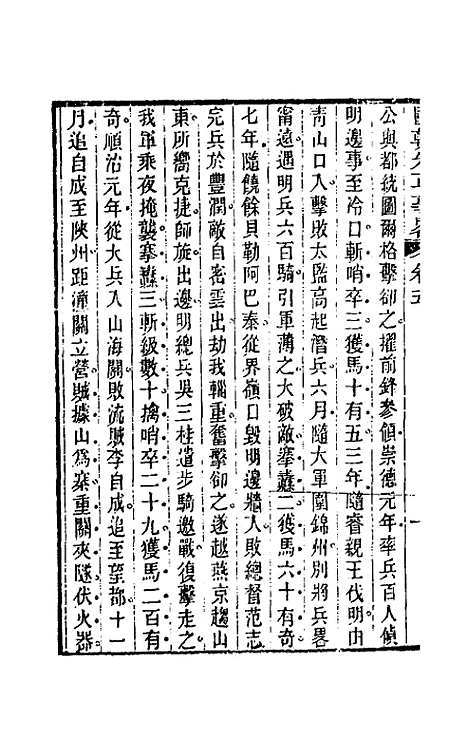 國朝先正事略 卷五 一
公與都統圖爾格擊卻之擢前鋒參領崇德元年率兵百人偵
明邊事至冷口斬哨卒三獲馬十有五三年隨睿親王伐明由
靑山口入擊敗太監高起潛兵六月隨大軍圍錦州別將兵畧
甯遠遇明兵六百騎引軍薄之大破敵搴纛二獲馬六十有奇
七年隨饒餘貝勒阿巴泰從界嶺口毀明邊牆入敗總督范志
完兵於豐潤敵自密雲出劫我輜重奮擊卻之遂越燕京趨山
東所嚮克捷師旋出邊明總兵吳三桂遣步騎邀戰復擊走之
我軍乘夜掩襲搴纛三斬級數十擒哨卒二十九獲馬二百有
奇順治元年從大兵入山海關敗流賊李自成追至望都十一
月追自成至陝州距潼關立營賊據山爲寨重關夾隧伏火器